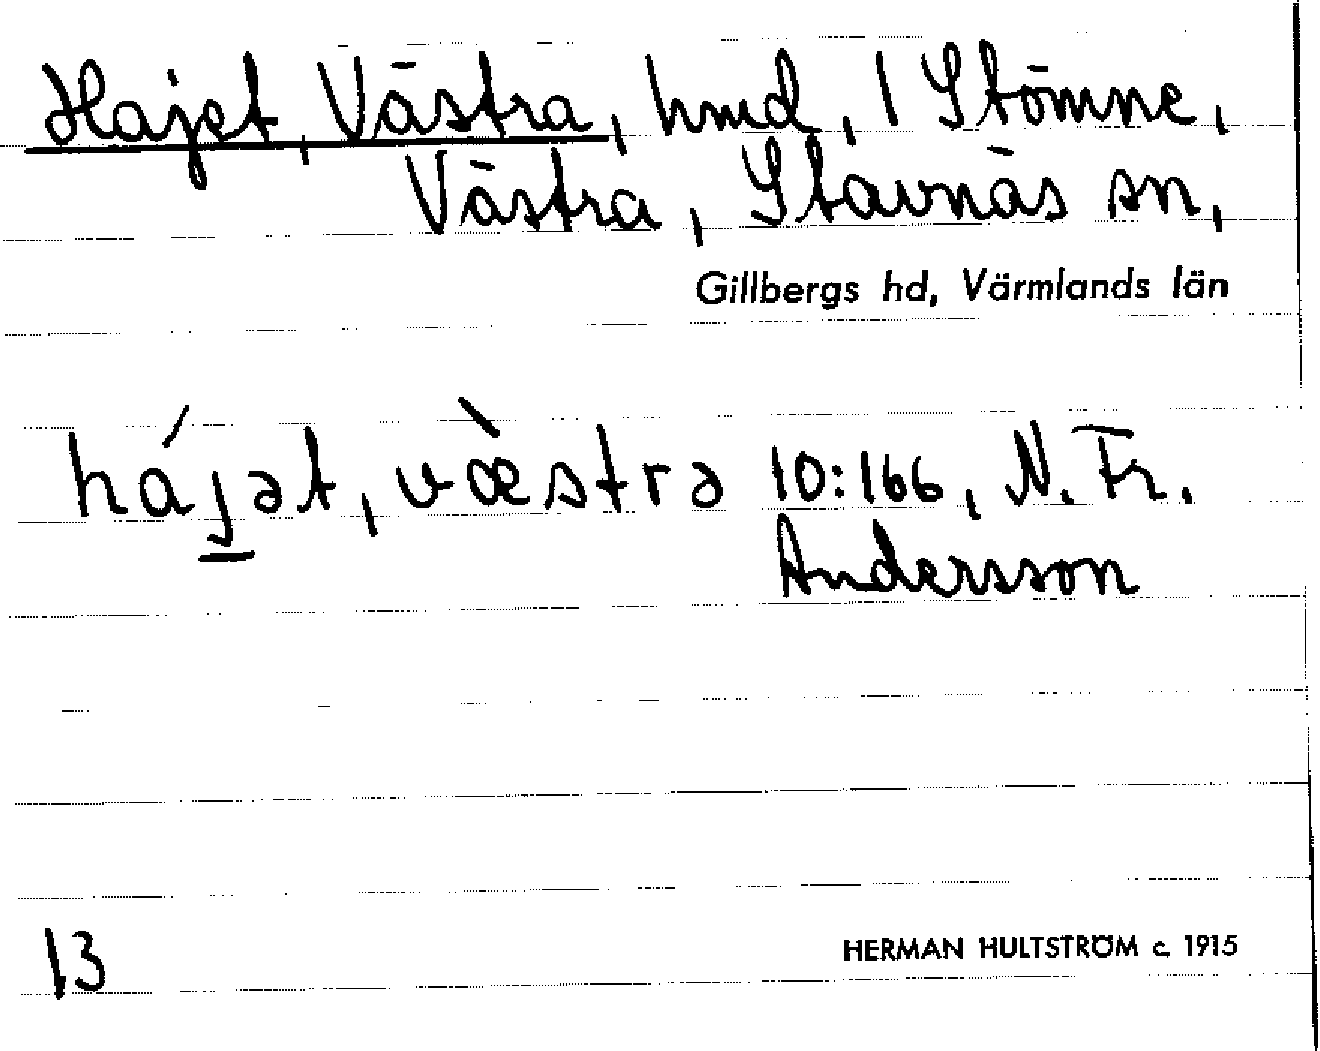 Hajet, Västra, hmd, 1 Stömne,
Västra, Stavnäs sn,
Gillbergs hd, Värmlands län
háj̲ət, væ̀stra 10:166, N. Fr.
Andersson
13
HERMAN HULTSTRÖM c. 1915